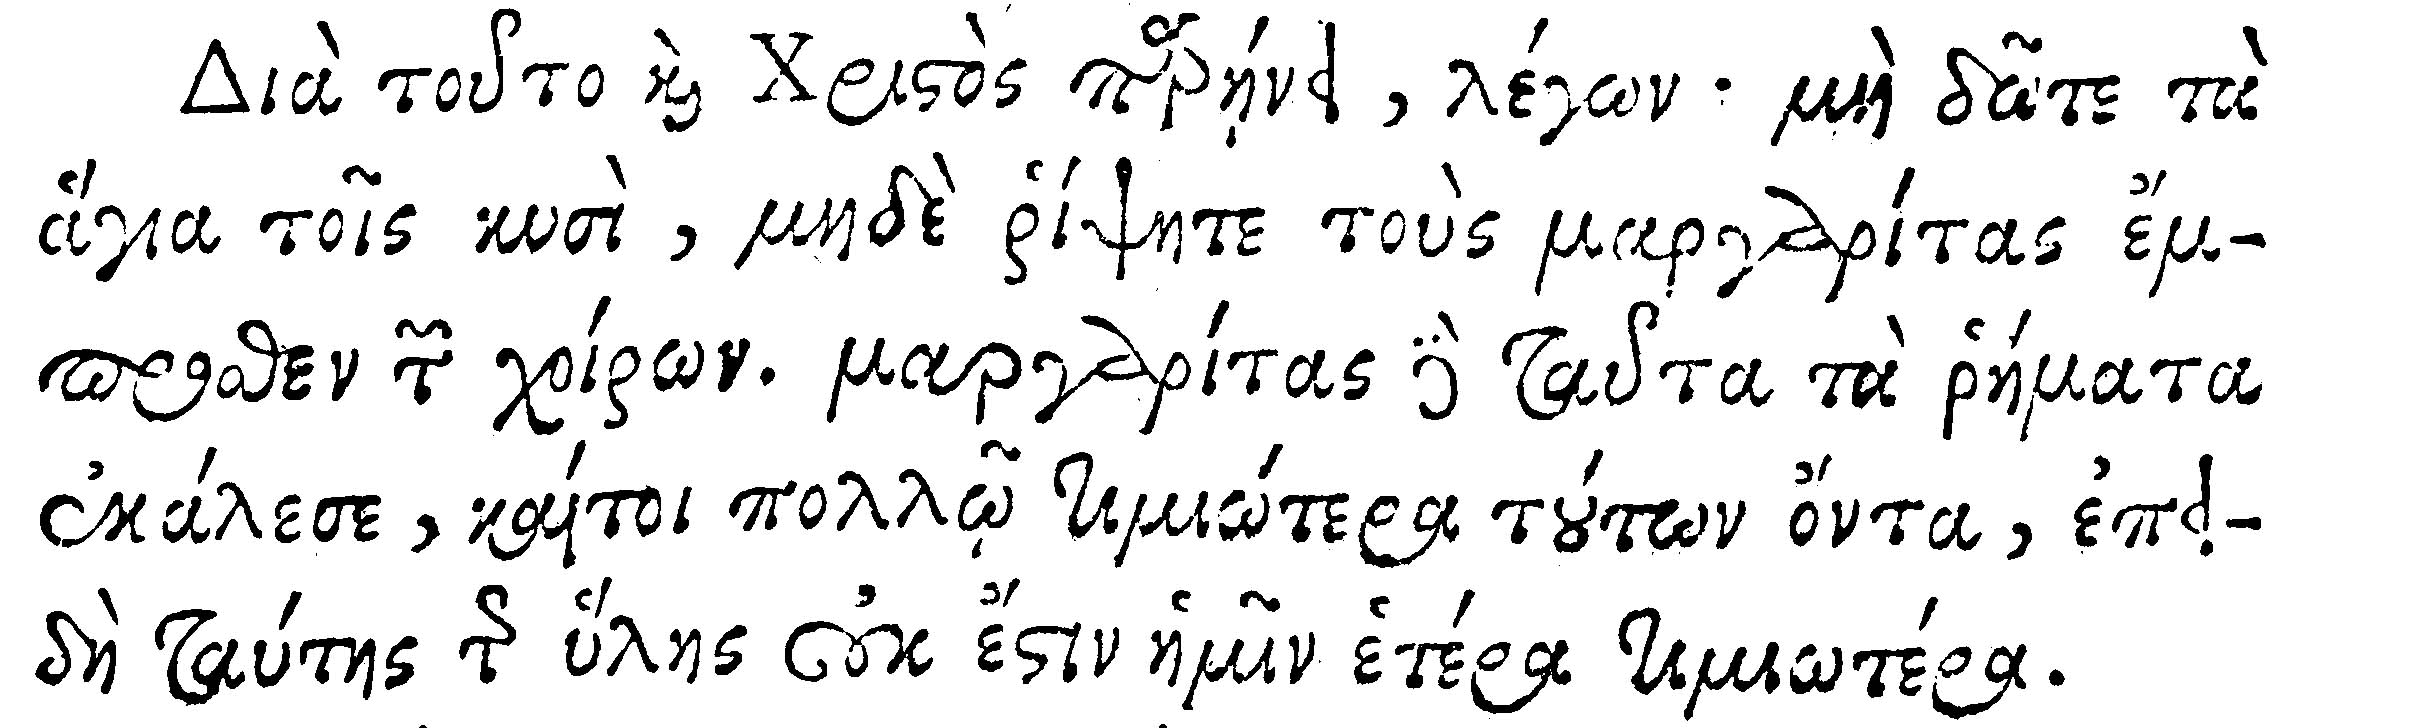 Διὰ τοῦτο καὶ Χριστὸς παρῄνει, λέγων· μὴ δῶτε τὰ
ἅγια τοῖς κυσὶ, μηδὲ ῥίψητε τοὺς μαργαρίτας ἔμ-
προσθεν τῶν χοίρων. μαργαρίτας δὲ ταῦτα τὰ ῥήματα
ἐκάλεσε, καίτοι πολλῷ τιμιώτερα τούτων ὄντα, ἐπει-
δὴ ταύτης τῆς ὕλης οὐκ ἔστιν ἡμῖν ἑτέρα τιμιωτέρα.